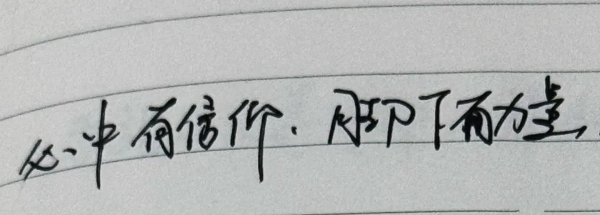 心中有信仰.脚下有力量